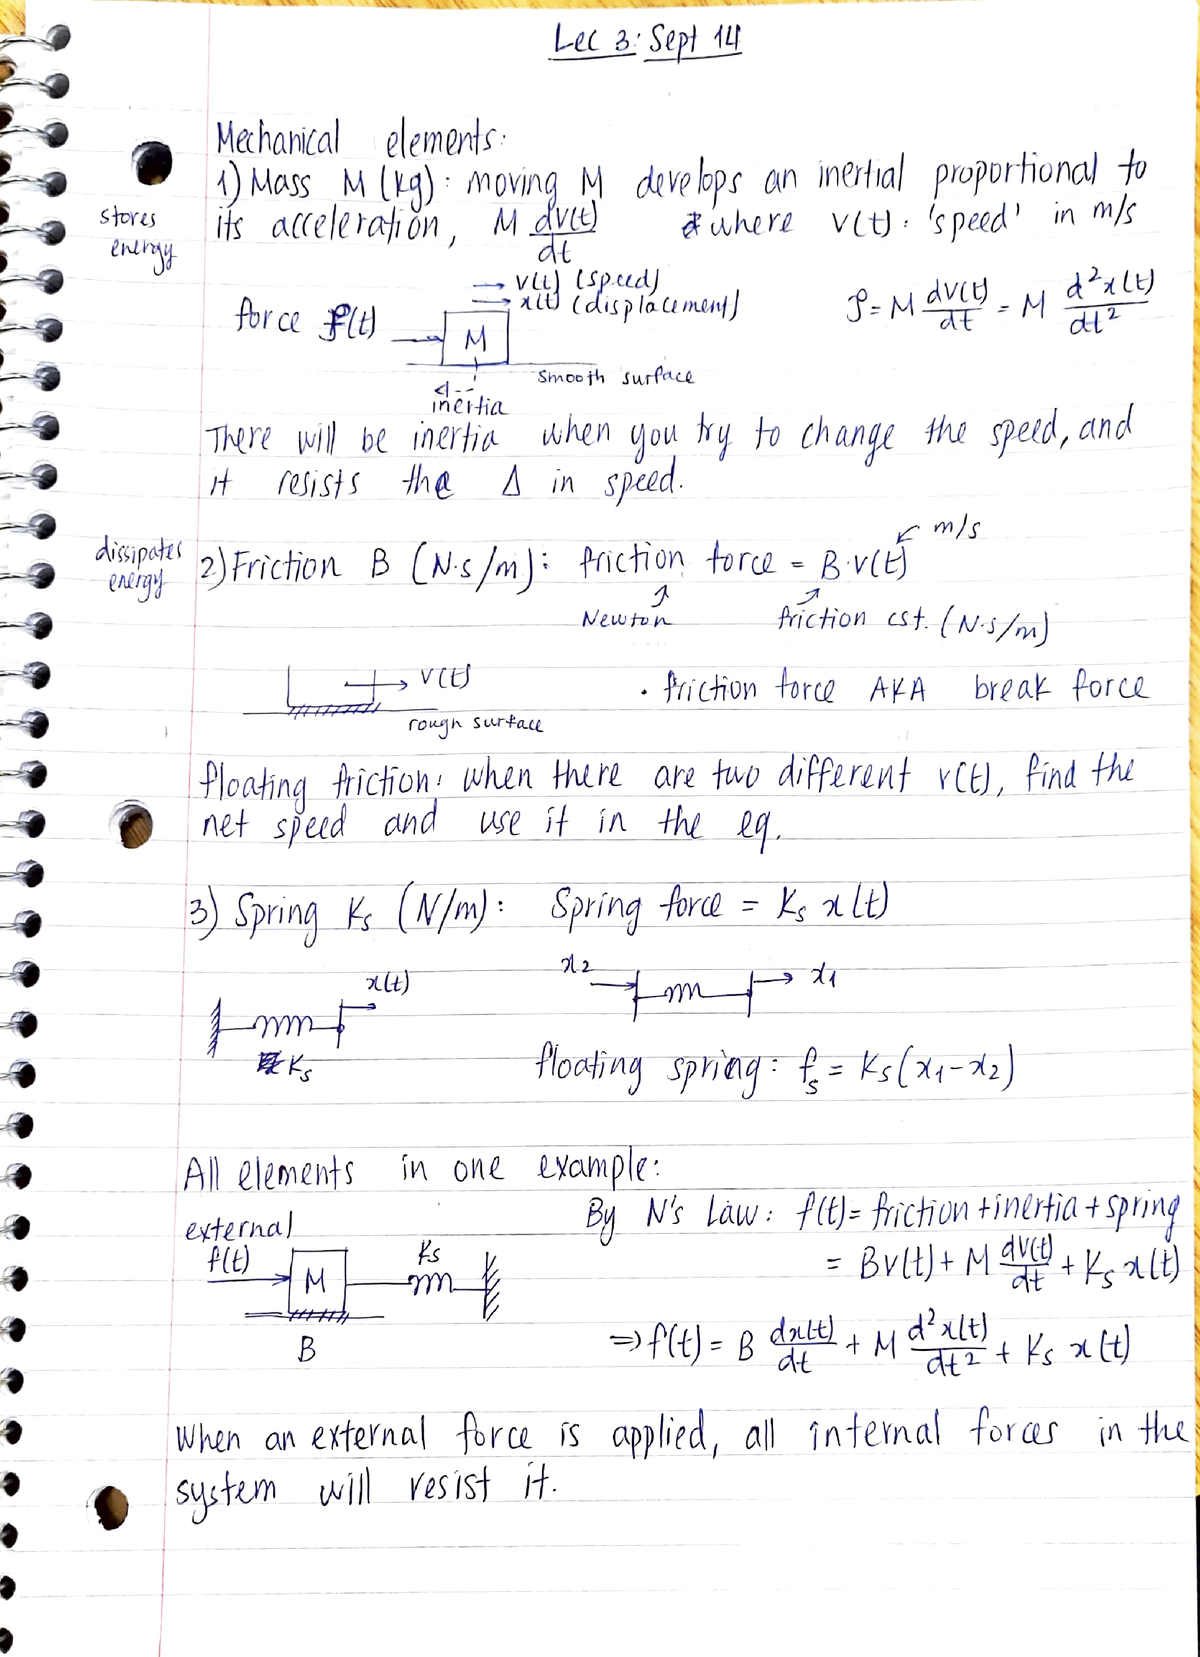 Lec 3: Sept 14
Mechanical elements:
1) Mass M (kg): moving M develops an inertial proportional to
stores energy
its acceleration, M dv(t)/dt where v(t): 'speed' in m/s
v(t) (speed)
x(t) (displacement)
force f(t)
M
f = M dv(t)/dt = M d²x(t)/dt²
smooth surface
inertia
There will be inertia when you try to change the speed, and
it resists the Δ in speed.
m/s
dissipates energy
2) Friction B (N·s/m): friction force = B·v(t)
Newton
friction cst. (N·s/m)
v(t)
rough surface
• friction force AKA break force
floating friction: when there are two different v(t), find the
net speed and use it in the eq.
3) Spring Ks (N/m): Spring force = Ks x(t)
x(t)
Ks
x2
x1
floating spring: fs = Ks(x1-x2)
All elements in one example:
external
f(t)
M
Ks
B
By N's Law: f(t) = friction + inertia + spring
= Bv(t) + M dv(t)/dt + Ks x(t)
⇒ f(t) = B dx(t)/dt + M d²x(t)/dt² + Ks x(t)
When an external force is applied, all internal forces in the
system will resist it.